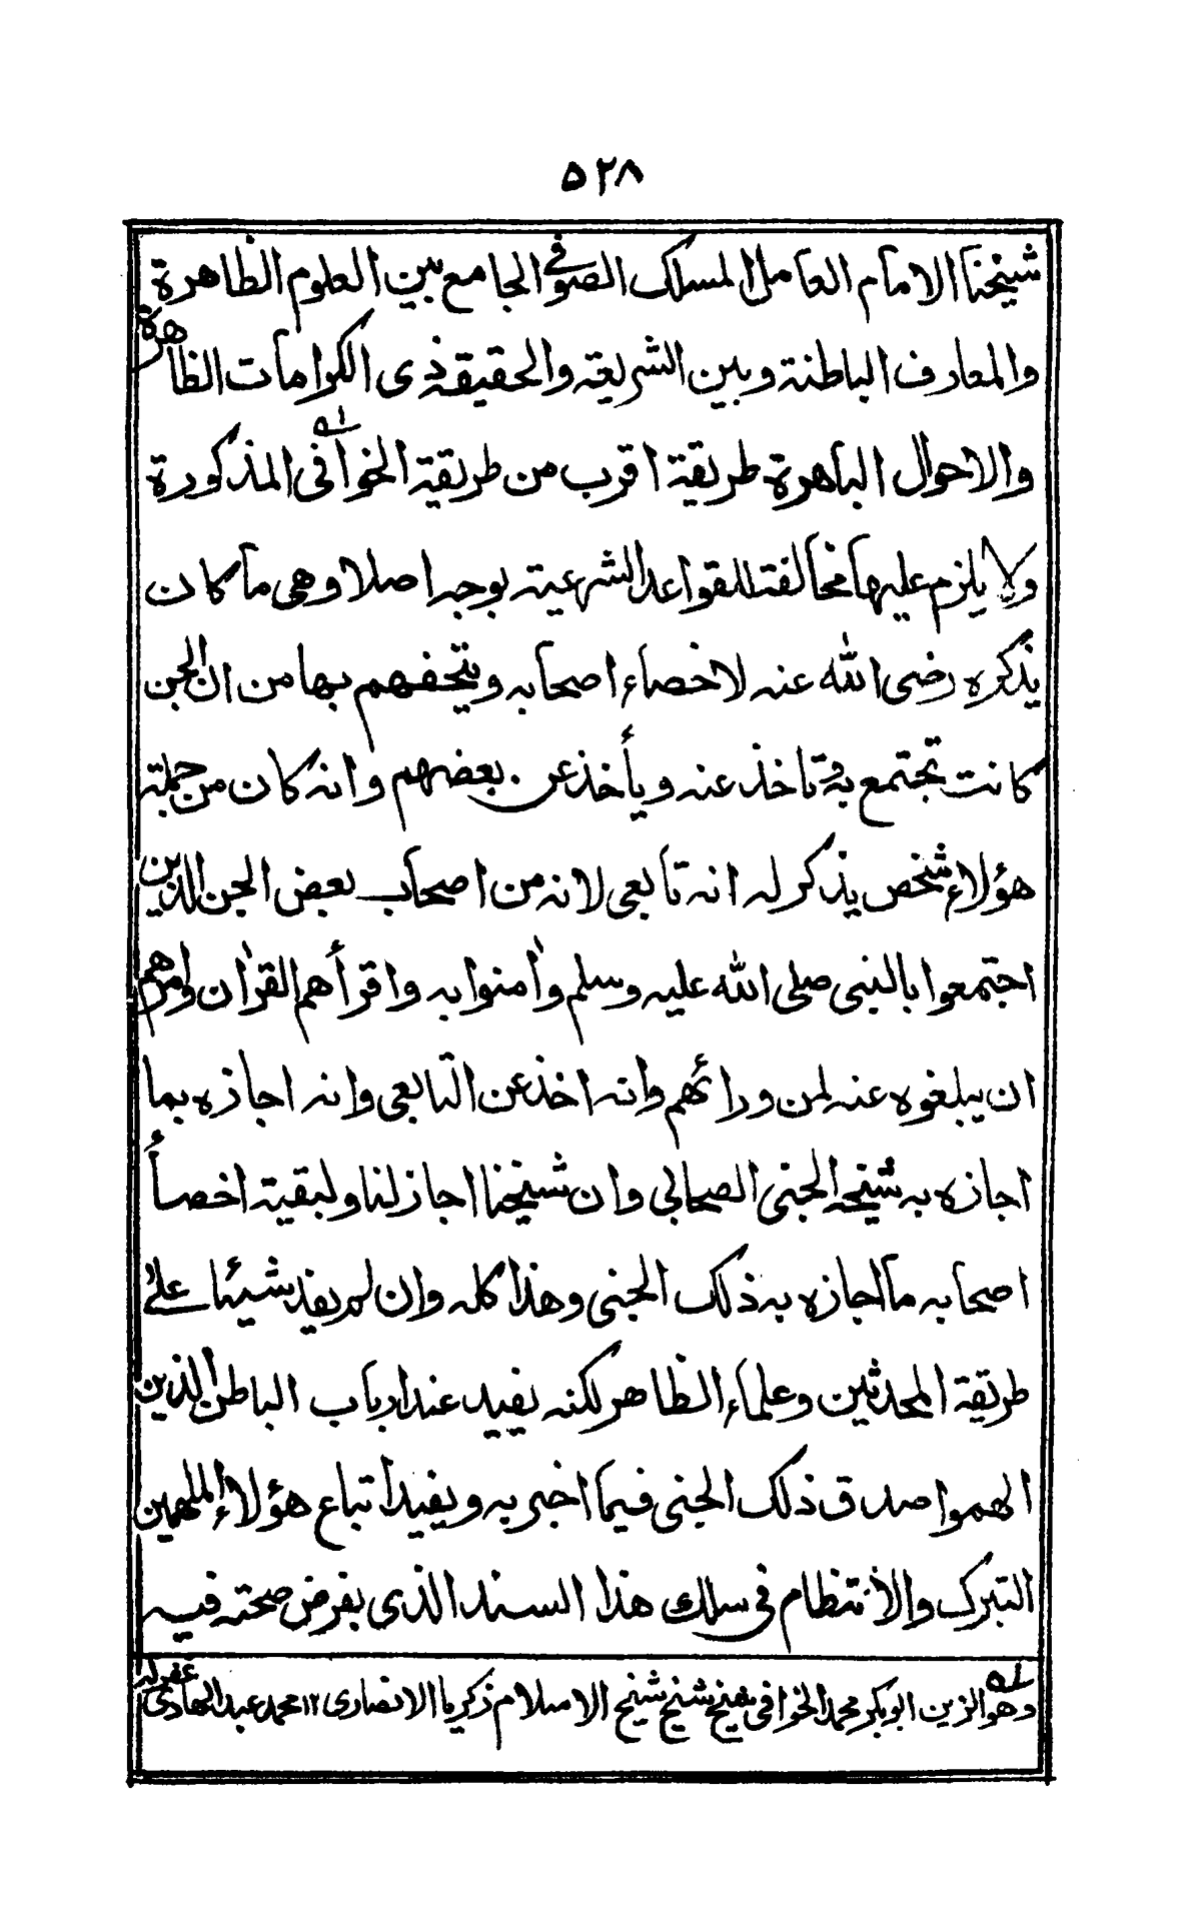 ٥٢٨
شيخنا الامام العامل المسلك الصوفى الجامع بين العلوم الظاهرة
والمعارف الباطنة وبين الشريعة والحقيقة ذى الكرامات الظاهرة
والاحوال الباهرة طريقة اقرب من طريقة الخوافى المذكورة
ولا يلزم عليها مخالفة للقواعد الشرعية بوجه اصلا وهى ما كان
يذكره رضى الله عنه لاخصاء اصحابه ويتحفهم بها من ان الجن
كانت تجتمع به تاخذ عنه ويأخذ عن بعضهم وانه كان من جملة
هؤلاء شخص يذكر له انه تابعى لانه من اصحاب بعض الجن الذين
اجتمعوا بالنبى صلى الله عليه وسلم وآمنوا به واقرأهم القرآن وامرهم
ان يبلغوه عنه لمن ورائهم وانه اخذ عن التابعى وانه اجازه بما
اجازه به شيخه الجنى الصحابى وان شيخنا اجاز لنا ولبقية اخصاء
اصحابه ما اجازه به ذلك الجنى وهذا كله وان لم يفد شيئا على
طريقة المحدثين وعلماء الظاهر لكنه يفيد عند ارباب الباطن الذين
الهموا صدق ذلك الجنى فيما اخبر به ويفيد اتباع هؤلاء الملهمين
التبرك والانتظام فى سلك هذا السند الذى بفرض صحته فيه
وهو الزين ابوبكر محمد الخوافى شيخ شيخ شيخ الاسلام زكريا الانصارى ١٢ محمد عبد الهادى غفرله